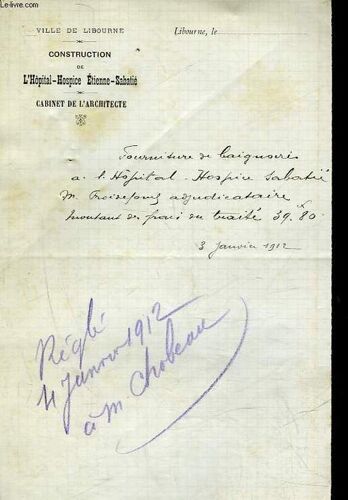 VILLE DE LIBOURNE
Libourne, le
CONSTRUCTION
DE
L'Hôpital-Hospice Étienne-Sabatié
CABINET DE L'ARCHITECTE
Fourniture de baignoires
a l'Hôpital-Hospice Sabatié
M. adjudicataire
Montant des frais du traité 39.80
3 Janvier 1912
Réglé
4 Janvier 1912
à M Chobeau